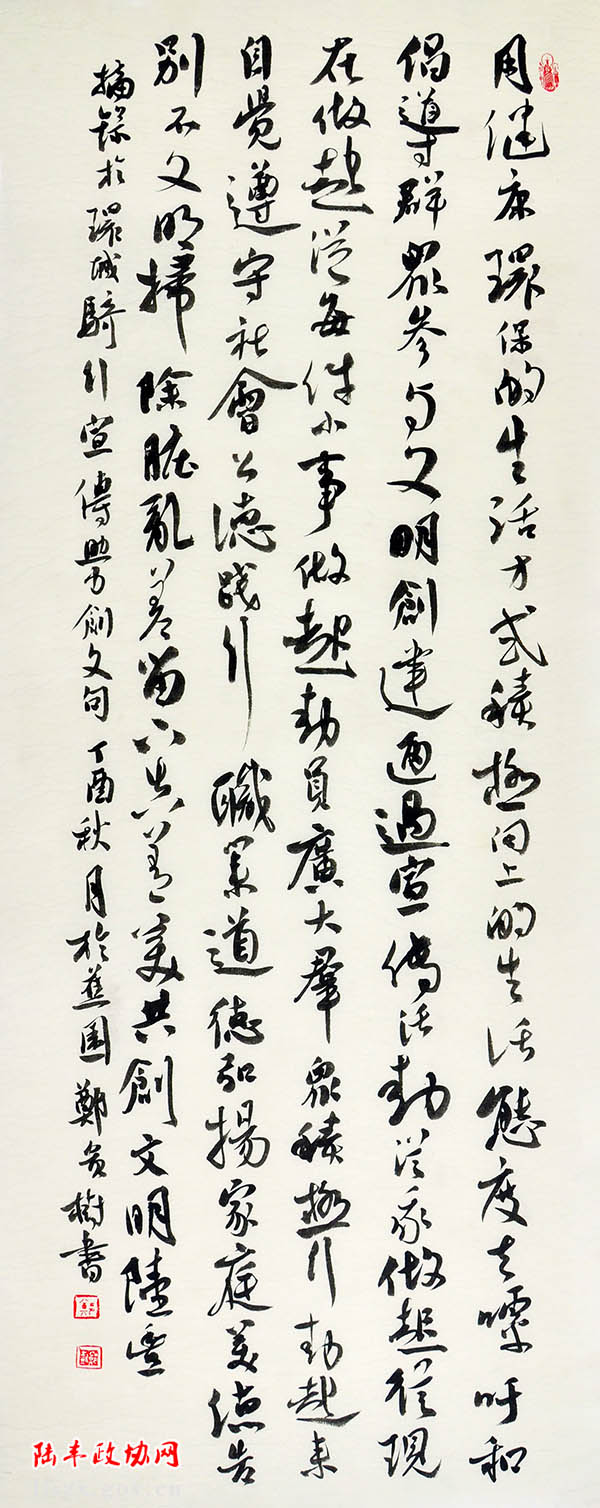 用健康環保的生活方式積極向上的生活態度去嘌呼和
倡導群眾參与文明創建通過宣傳活動從我做起從現
在做起從每件小事做起動員廣大羣眾積極行動起來
自覺遵守社會公德踐行職業道德弘揚家庭美德告
別不文明掃除脏亂差留下真善美共創文明陸豐
摘錄於環城騎行宣傳助力創文句丁酉秋月於蕉園鄭貞樹書
陆丰政协网